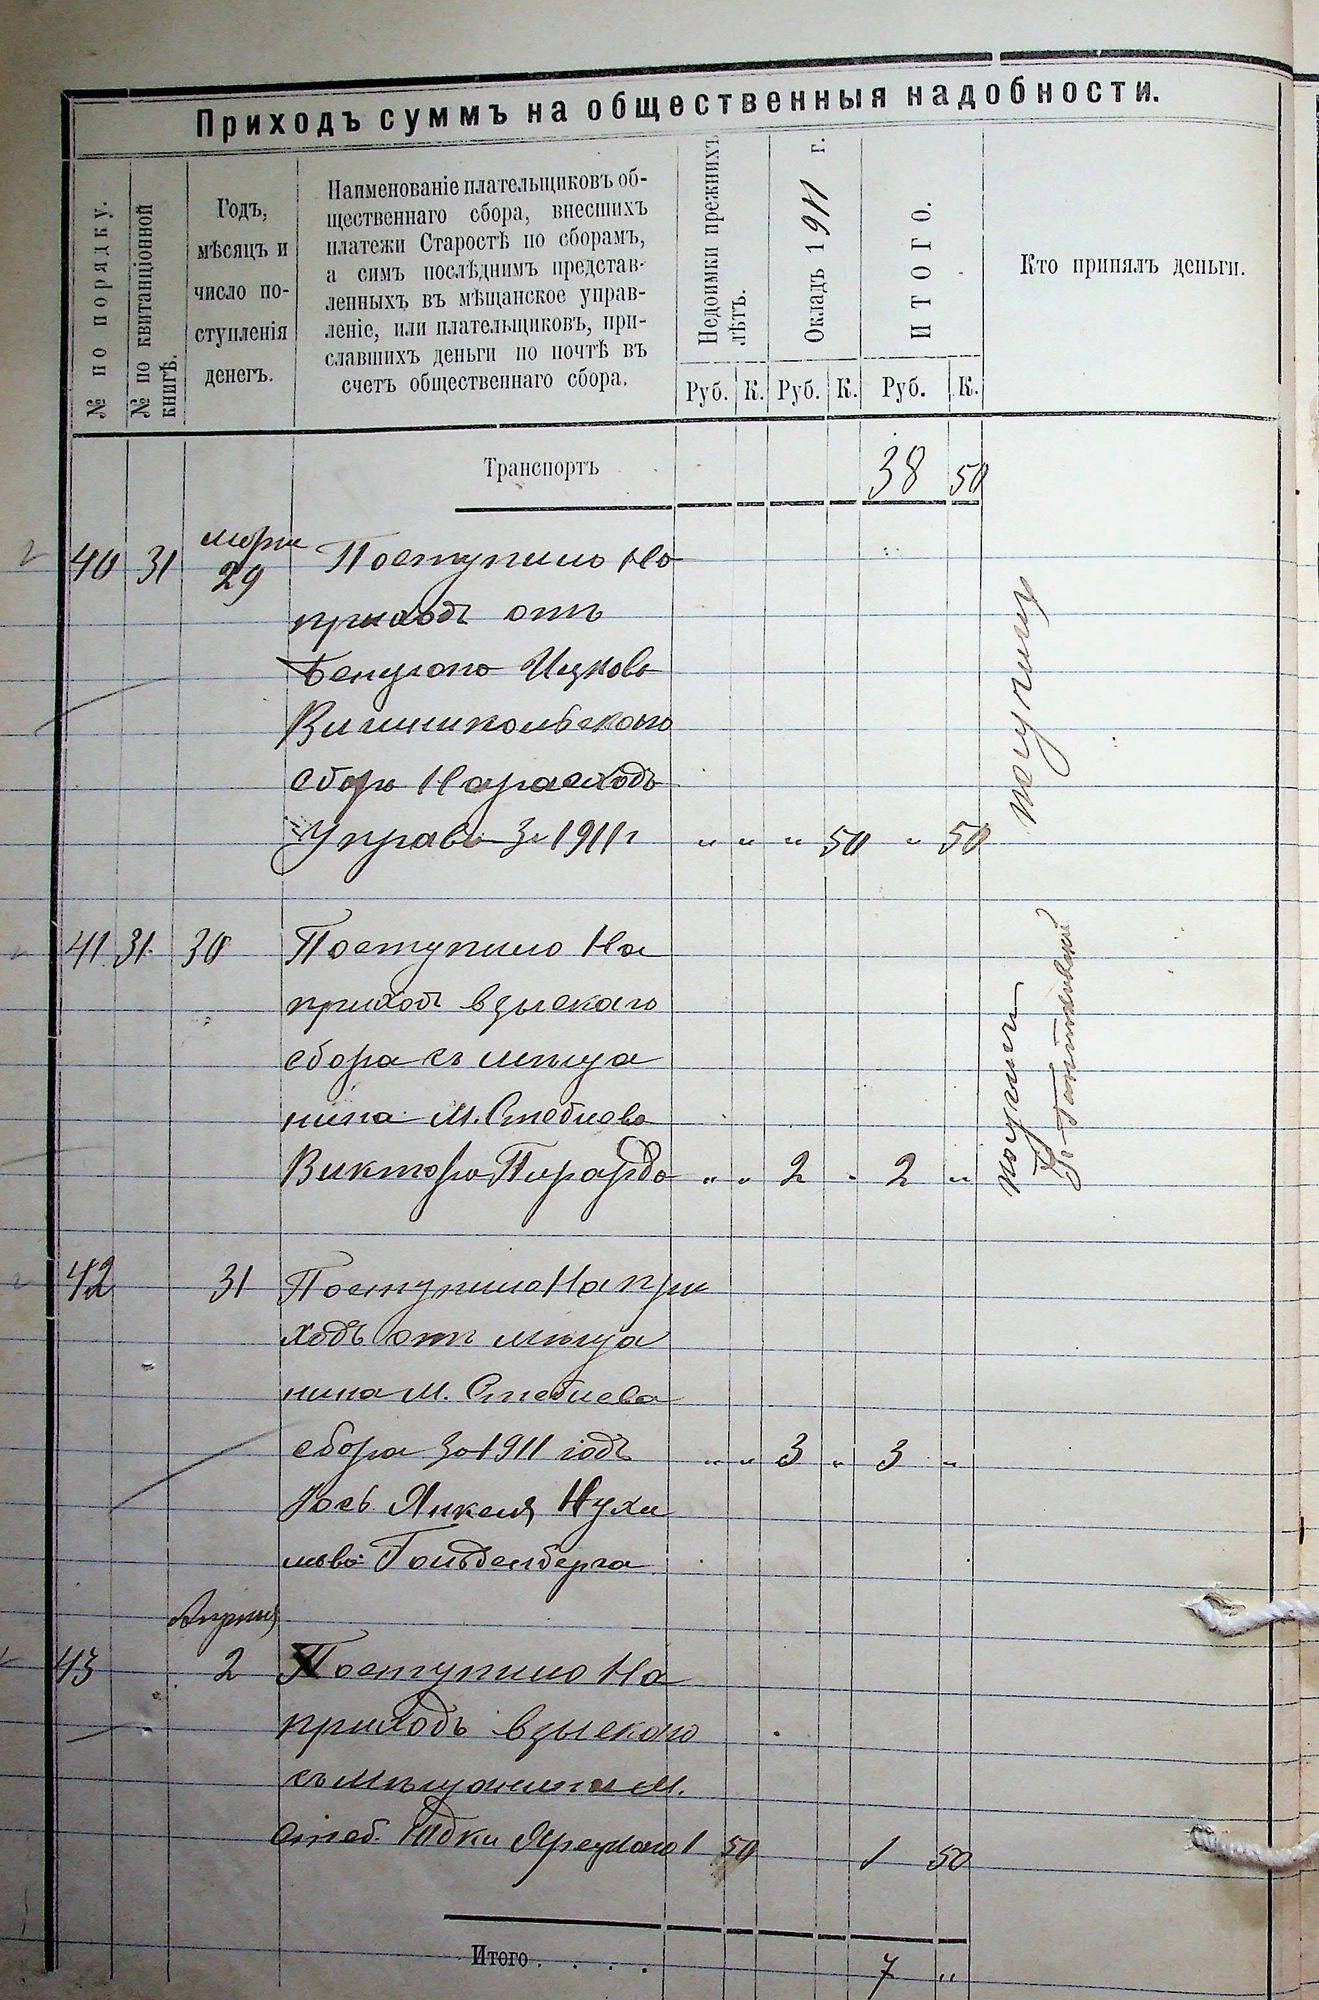 Приходъ суммъ на общественныя надобности.
№ по порядку.
№ по квитанціонной книгѣ.
Годъ,
мѣсяцъ и
число по-
ступленія
денегъ.
Наименованіе плательщиковъ об-
щественнаго сбора, внесшихъ
платежи Старостѣ по сборамъ,
а симъ послѣднимъ представ-
ленныхъ въ мѣщанское управ-
леніе, или плательщиковъ, при-
славшихъ деньги по почтѣ въ
счетъ общественнаго сбора.
Недоимки прежнихъ лѣтъ.
Окладъ 1911 г.
ИТОГО.
Кто принялъ деньги.
Руб. К. Руб. К. Руб. К.
Транспортъ 38 50
марта
40 31 29 Поступило на
приходъ отъ
Ицкова
сбора на расходъ
Управы за 1911 г " " " 50 " 50
получилъ
41 31 30 Поступило на
приходъ взыскано
сбора съ мѣща
нина М. Стеблева
Виктора " " 2 " 2 "
получилъ
42 31 Поступило на при
ходъ отъ мѣща
нина М. Стеблева
сбора за 1911 годъ " " 3 " 3 "
Янкеля Нухи
мова Гольденберга
Апреля
43 2 Поступило на
приходъ взыскано
съ мѣщанина М.
Стеб. Юдки 1 50 1 50
Итого . . . . 7 "